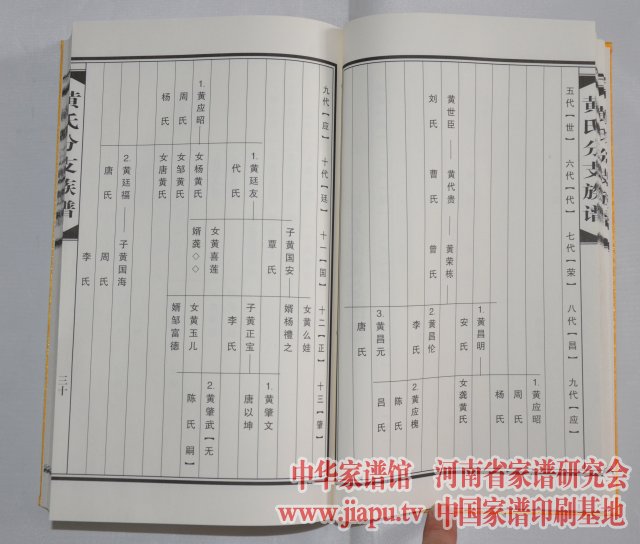 黄氏分支族谱
五代【世】 六代【代】 七代【荣】 八代【昌】 九代【应】
黄世臣——黄代贵——黄荣栋
刘氏 曹氏 曾氏
1.黄昌明——1.黄应昭
安氏 周氏
杨氏
女龚黄氏
2.黄昌伦——2.黄应槐
李氏 陈氏
吕氏
3.黄昌元
唐氏
九代【应】 十代【廷】 十一【国】 十二【正】 十三【肇】
女黄么娃
婿杨禮之
1.黄应昭——1.黄廷友——子黄国安——子黄正宝——1.黄肇文
周氏 代氏 覃氏 李氏 唐以坤
杨氏
2.黄肇武【无嗣】
陈氏
女杨黄氏 女黄喜莲 女黄玉儿
女邹黄氏 婿龚◇◇ 婿邹富德
女唐黄氏
2.黄廷福——子黄国海
唐氏 周氏
李氏
黄氏分支族谱
三十
中华家谱馆 河南省家谱研究会
www.jiapu.tv 中国家谱印刷基地